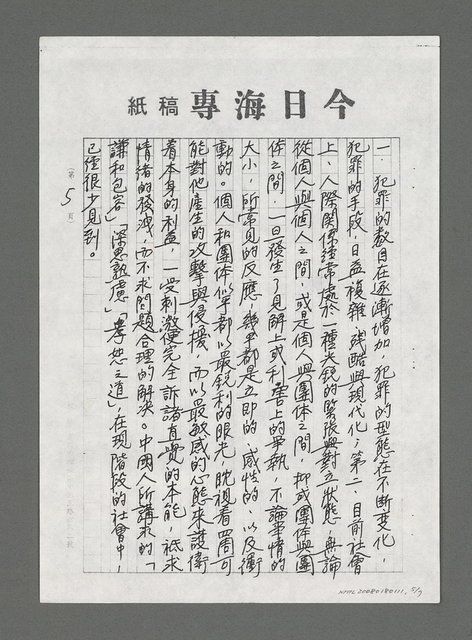 今日海專 稿紙
一、犯罪的數目在逐漸增加，犯罪的型態在不斷變化，
犯罪的手段，日益複雜、殘酷與現代化；第二、目前社會
上，人際關係經常處於一種尖銳的緊張與對立狀態，無論
從個人與個人之間，或是個人與團体之間，抑或團体與團
体之間，一旦發生了見解上或利害上的爭執，不論事情的
大小，所常見的反應，幾乎都是立即的、感性的、以及衝
動的。個人和團体似乎都以最銳利的眼光，眈視着周圍可
能對他產生的攻擊與侵擾，而以最敏感的心態來護衛
着本身的利益，一受刺激便完全訴諸直覺的本能，祇求
情緒的發洩，而不求問題合理的解決。中國人所講求的「
謙和包容」「深思熟慮」「孝恕之道」，在現階段的社會中，
已經很少見到。
第 5 頁
NMTL20080180111, 5/9